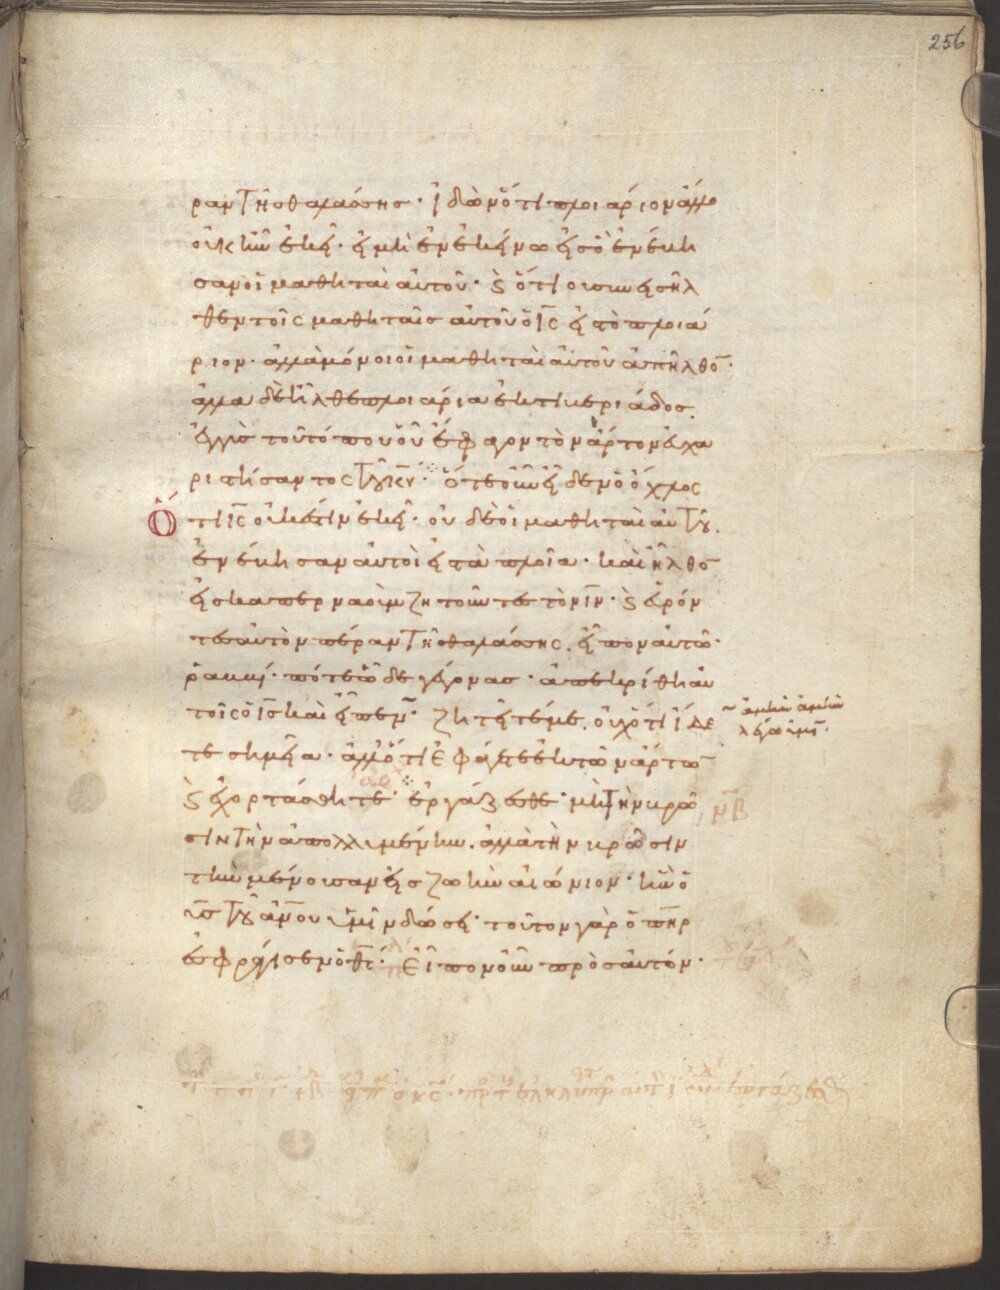 256
ραν τῆς θαλάσσης· ἰδὼν ὅτι πλοιάριον ἄλλο
οὐκ ἦν ἐκεῖ· εἰ μὴ ἓν ἐκεῖνο εἰς ὃ ἐνέβη
σαν οἱ μαθηταὶ αὐτοῦ· καὶ ὅτι οὐ συνεισῆλ
θεν τοῖς μαθηταῖς αὐτοῦ ὁ ις εἰς τὸ πλοιά
ριον· ἀλλὰ μόνοι οἱ μαθηταὶ αὐτοῦ ἀπῆλθο̄·
ἄλλα δὲ ἦλθε πλοιάρια ἐκ τιβεριάδος
ἐγγὺς τοῦ τόπου ὅπου ἔφαγον τὸν ἄρτον εὐχα
ριστήσαντος τοῦ κυ· ὅτε οὖν εἶδεν ὁ ὄχλος
ὅτι ις οὐκ ἔστιν ἐκεῖ· οὐδὲ οἱ μαθηταὶ αὐτοῦ.
ἐνέβησαν αὐτοὶ εἰς τὰ πλοῖα· καὶ ἦλθο̄
εἰς καπερναοὺμ ζητοῦντες τὸν ιν· καὶ εὑρόν
τες αὐτὸν πέραν τῆς θαλάσσης. εἶπον αὐτῶ·
ῥαββί· πότε ὧδε γέγονας· ἀπεκρίθη αὐ
τοῖς ὁ ις καὶ εἶπεν· ζητεῖτέ με. οὐχ ὅτι ἴδε
ἀμὴν ἀμὴν
λέγω ὑμῖν·
τε σημεῖα· ἀλλ' ὅτι ἐφάγετε ἐκ τῶν ἄρτω̄
καὶ ἐχορτάσθητε· ἐργάζεσθε· μὴ τὴν βρῶ
σιν τὴν ἀπολλυμένην. ἀλλὰ τὴν βρῶσιν
τὴν μένουσαν εἰς ζωὴν αἰώνιον· ἣν ὁ
υς τοῦ ανου ὑμῖν δώσει· τοῦτον γὰρ ὁ πηρ
ἐσφράγισεν ὁ θς· εἶπον οὖν πρὸς αὐτόν·